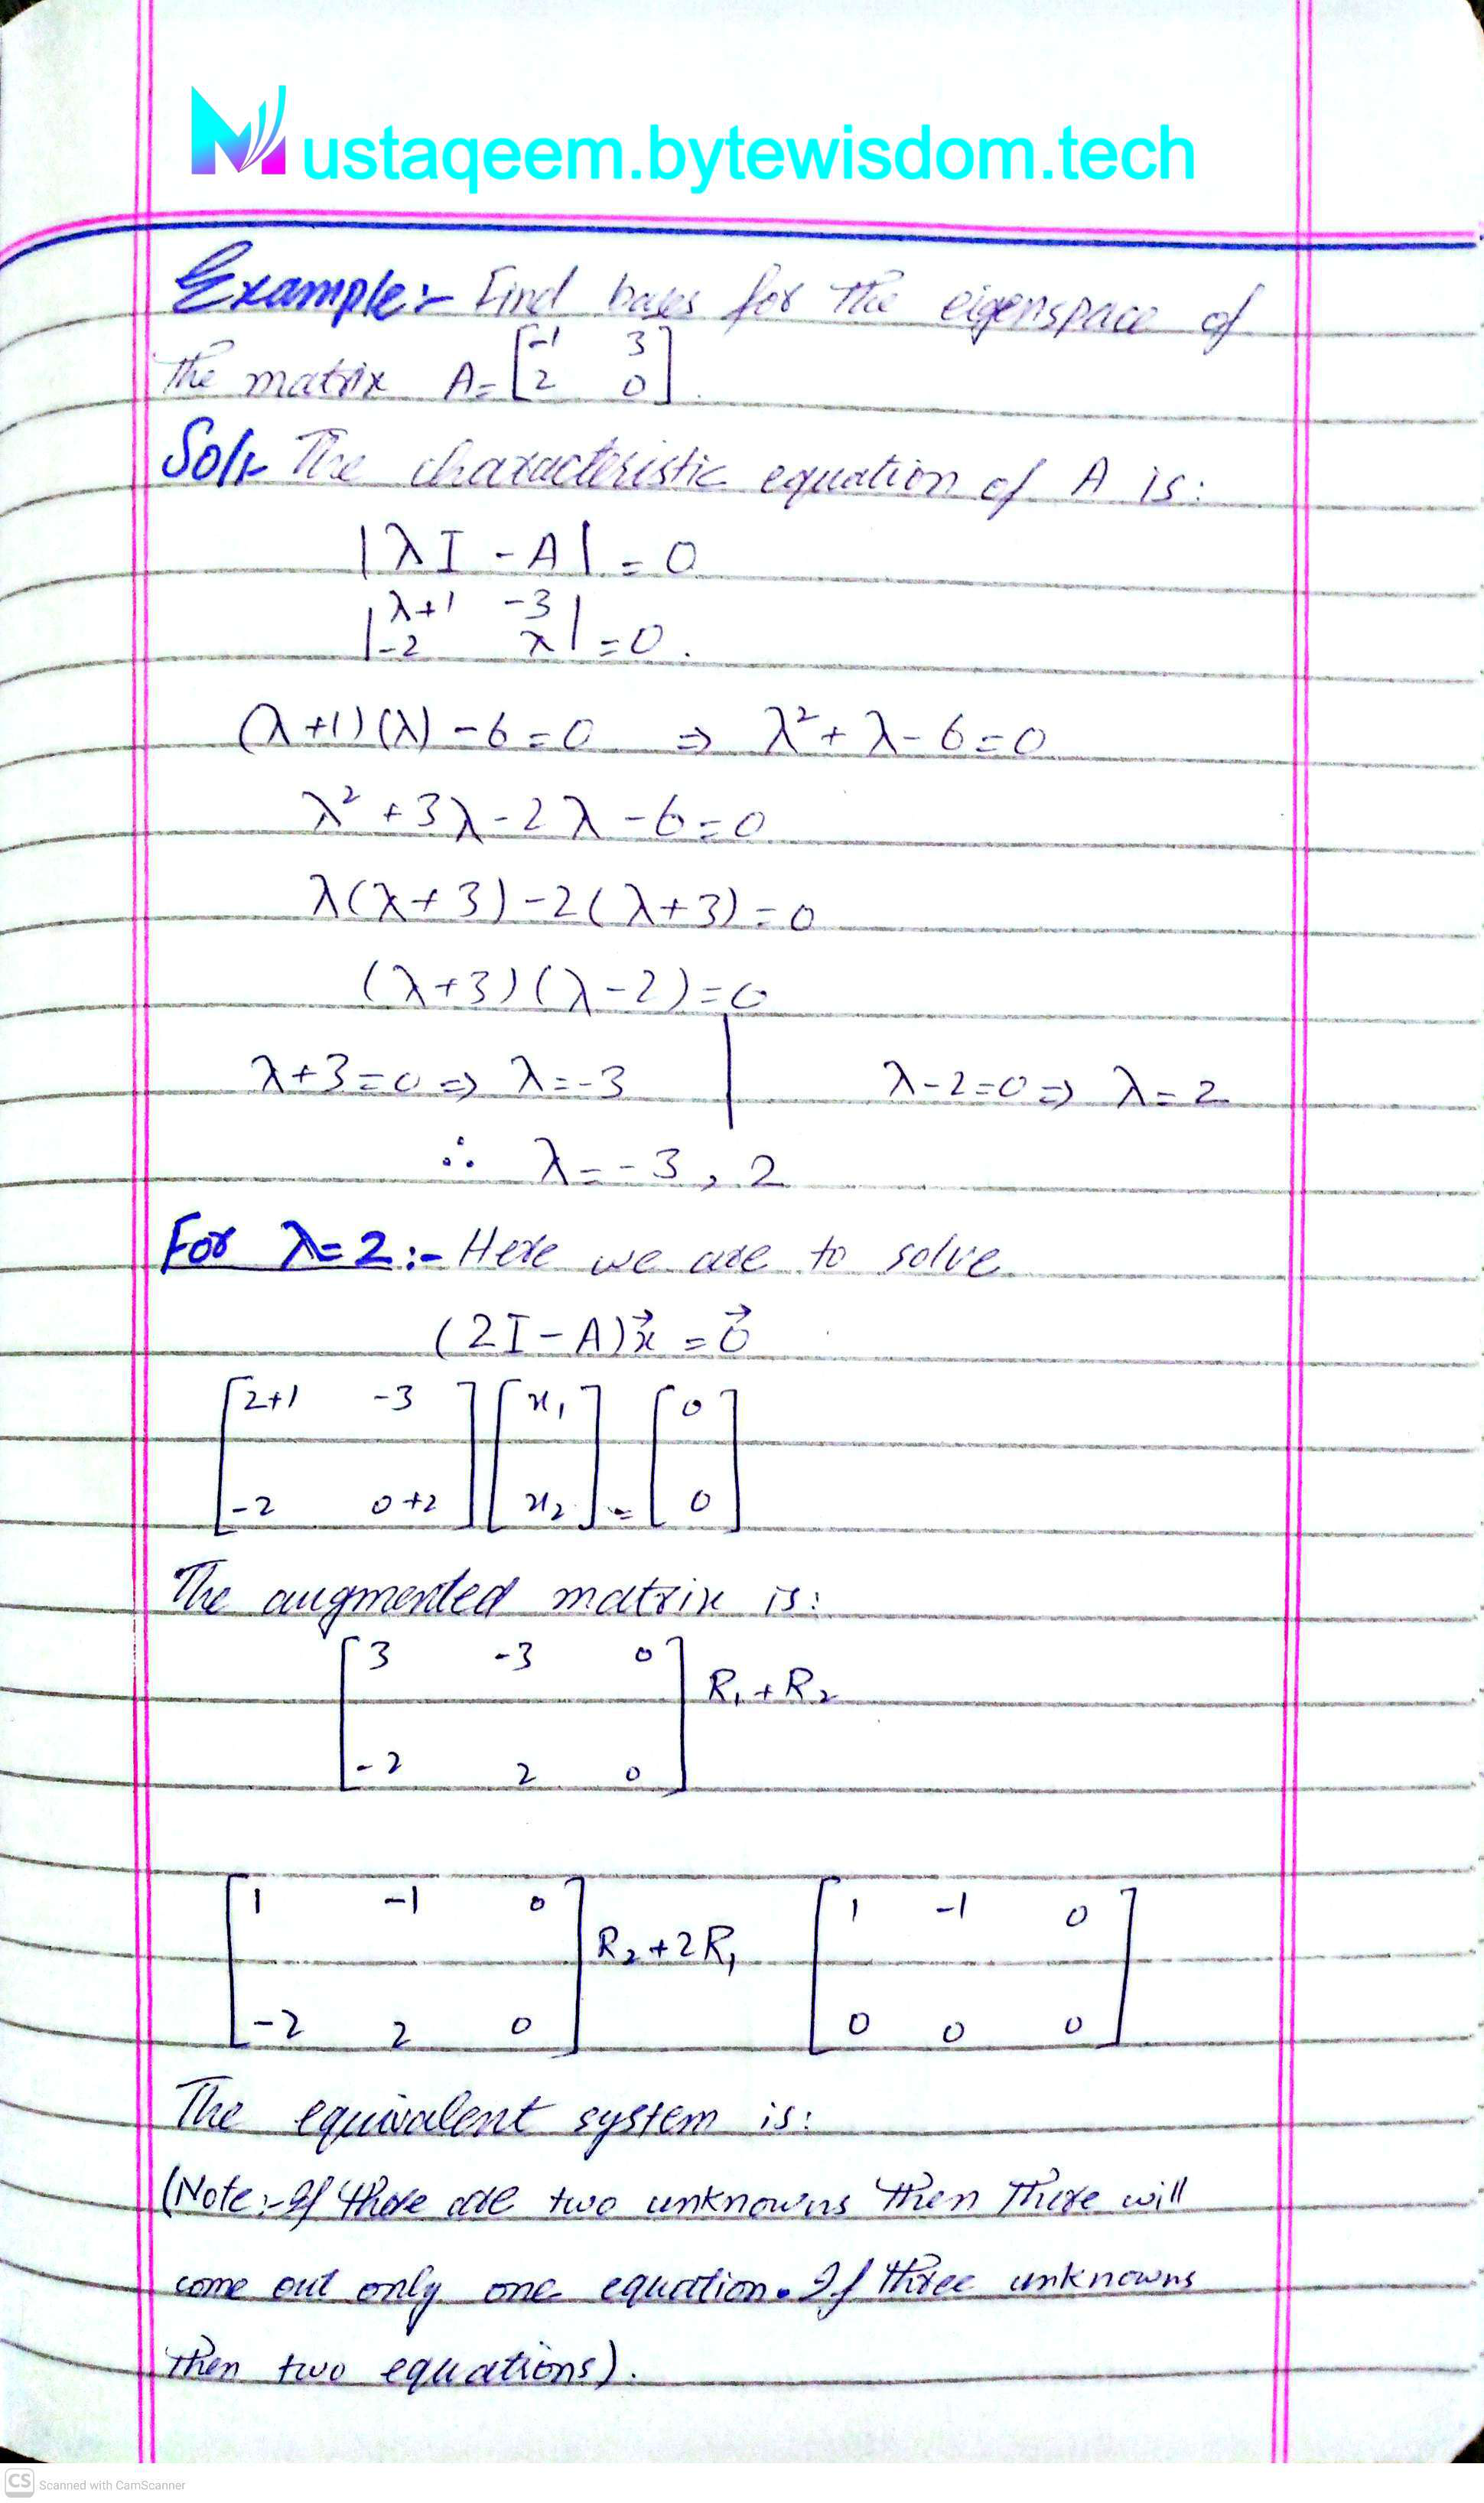 Mustaqeem.bytewisdom.tech
Example:- Find bases for the eigenspace of
the matrix A = [-1 3
2 0].
Sol:- The characteristic equation of A is:
|λI - A| = 0
|λ+1 -3
-2 λ| = 0.
(λ+1)(λ) - 6 = 0 ⇒ λ² + λ - 6 = 0
λ² + 3λ - 2λ - 6 = 0
λ(λ+3) - 2(λ+3) = 0
(λ+3)(λ-2) = 0
λ+3=0 ⇒ λ=-3 | λ-2=0 ⇒ λ=2
∴ λ = -3, 2
For λ=2:- Here we are to solve
(2I - A)x⃗ = 0⃗
[2+1 -3] [x₁] [0]
[-2 0+2] [x₂] = [0]
The augmented matrix is:
[3 -3 0] R₁+R₂
[-2 2 0]
[1 -1 0] R₂+2R₁ [1 -1 0]
[-2 2 0] [0 0 0]
The equivalent system is:
(Note:- If there are two unknowns then there will
come out only one equation. If three unknowns
then two equations).
CS Scanned with CamScanner